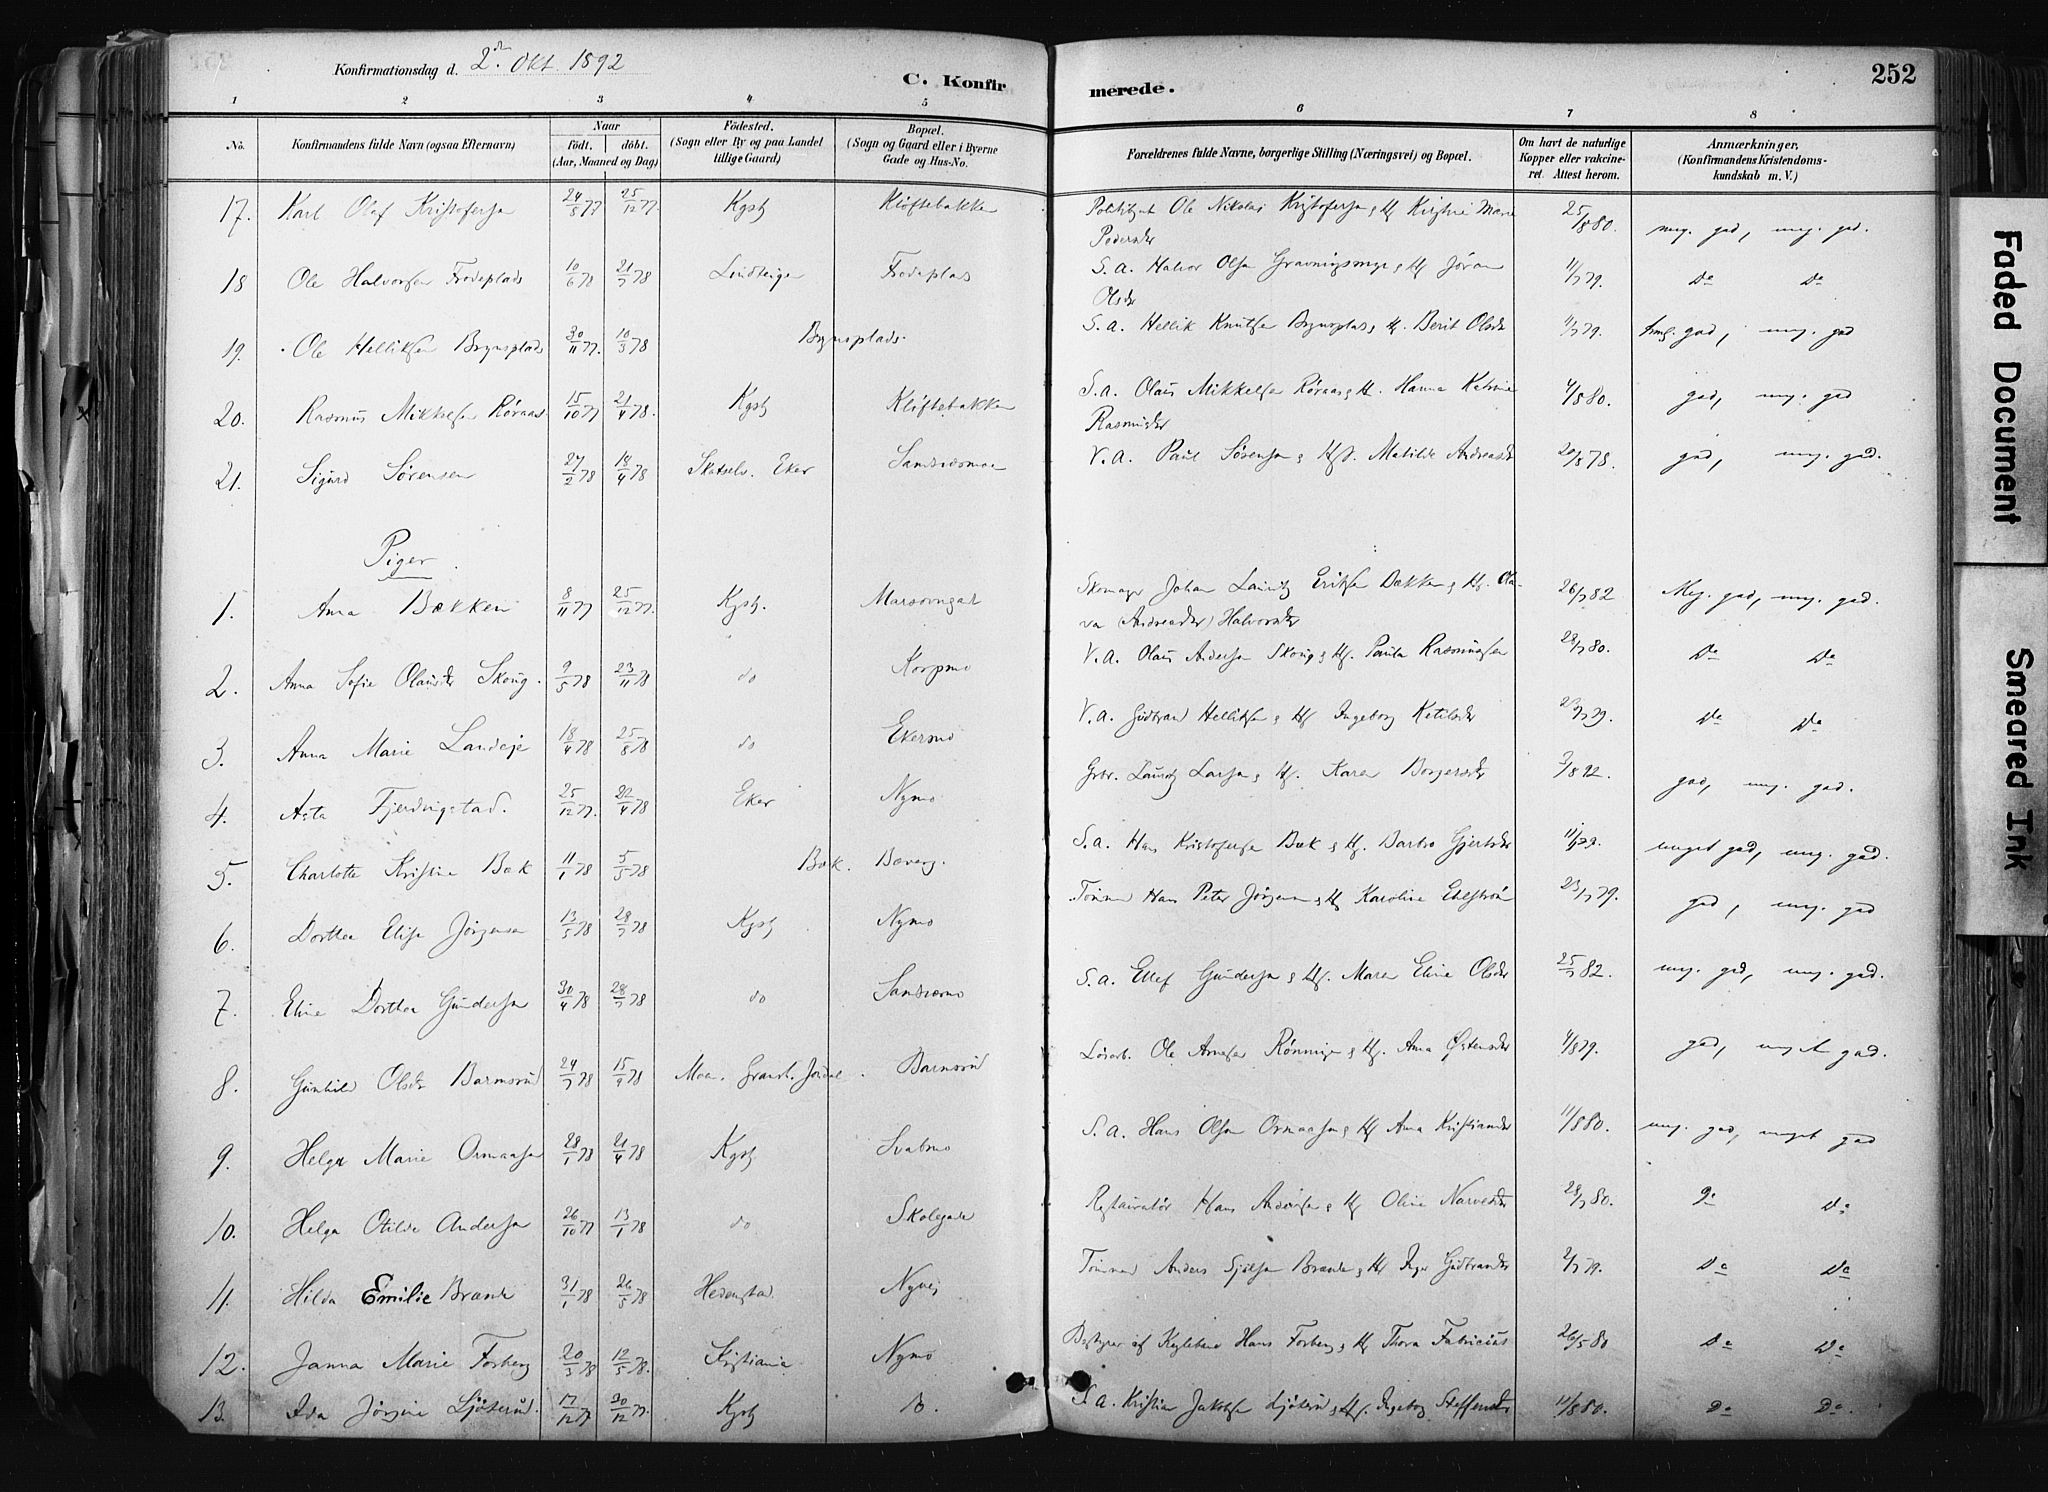 Konfirmationsdag d. 2den Okt 1892
C. Konfirmerede.
252
1 2 3 4 5 6 7 8
No.
Konfirmandens fulde Navn (ogsaa Efternavn)
Naar født. døbt. (Aar, Maaned og Dag)
Fødested. (Sogn eller By og paa Landet tillige Gaard)
Bopæl. (Sogn og Gaard eller i Byerne Gade og Hus-No.
Forældrenes fulde Navne, borgerlige Stilling (Næringsvei) og Bopæl.
Om havt de naturlige Kopper eller vakcineret. Attest herom.
Anmærkninger, (Konfirmandens Kristendomskundskab m. V.)
17. Karl Olaf Kristofersen 24/5 77 25/12 77. Kgsbg Kløftebakken Ole Nikolai Kristofersen & H. Kristine Marie Pedersdtr 25/8 80. meg. god, meg. god.
18 Ole Halvorsen Frodeplads 10/6 78 21/7 78 Frodeplas S.A. Halvor Olsen & H. Jøran Olsdtr 11/7 79. Do Do
19. Ole Helliksen Brynsplads 30/11 77. 10/3 78 Brynsplads. S.A. Hellik Knutsen Brynsplas & H. Berit Olsdtr 11/7 79. god, meg. god
20. Rasmus Mikkelsen Røraas 15/10 77 21/4 78. Kgsbg Kløftebakken S.A. Olaus Mikkelsen Røraas & H. Hanna Katrine Rasmusdtr 4/8 80. god, meg. god
21. Sigurd Sørensen 27/2 78 18/4 78 Skotselv. Eker Sandsværmoen V.A. Paul Sørensen & H. Matilde Andreasdtr 20/8 78. god, meg. god.
Piger
1. Anna Bækken 8/11 77 25/12 77. Kgsbg. Skomager Johan Lauritz Eriksen Bækken & H. Olava (Andreasdtr) Halvorsdtr 26/7 82 Meg. god, meg. god.
2. Anna Sofie Olausdtr Skoug. 9/5 78 23/11 78 do Korpmo V.A. Olaus Andersen Skoug & H. Paula Rasmussen 28/7 80. Do Do
3. Anna Marie Landeje 18/4 78 25/8 78 do Ekersmo V.A. Gudbrand Helliksen & H. Ingeborg Ketilsdtr Do Do
4. Asta Fjerdingstad. 25/12 77. 22/4 78 Eker Nymo Grbr. Lauritz Larsen & H. Karen Borgersdtr 3/8 92. god, meg. god.
5. Charlotte Kristine Bæk 11/1 78 5/5 78 Bæk. S.A. Hans Kristofersen Bæk & H. Barbro Gjertsdtr 11/7 79. meget god, meg. god.
6. Dorthea Elise Jørgensen 13/5 78 28/7 78 Kgsbg Nymo Tømmer Hans Peter Jørgensen & H. Karoline 23/7 79. god, meg. god
7. Eline Dorthea Gundersen 30/4 78 28/7 78 do Sandsvæmo S.A. Ellef Gundersen & H. Maren Eline Olsdtr 25/7 82. meg. god, meg. god.
8. Gunhild Olsdtr Barmsrud 24/7 78 15/9 78 Moen. Gransh. Jondal Barmsrud Løsarb. Ole Arnesen Rønningen & H. Anna Østensdtr 4/8 79. god, meget god.
9. Helga Marie Ormaasen 28/1 78 21/4 78 Kgsbg Svabmo S.A. Hans Olsen Ormaasen & H. Anna Kristiansdtr 11/8 80. meg. god, meget god
10. Helga Otilde Andersen 26/10 77 13/1 78 do Skolegade Restauratør Hans Andersen & H. Oline Narvesdtr 28/7 80. Do Do
11. Hilda Emilie Brænde 31/1 78 26/5 78 Hedenstad Nyvej Tømmer Anders Brænde & H. Inger Gudbrandsdtr 2/7 79. Do Do
12. Janna Marie Forberg 20/3 78 12/5 78. Kristiania Nymo Bestyrer af Hans Forberg & H. Thora Fabricius 26/5 80 Do Do
13. Ida Jørgine Ljøterud. 17/12 77 30/12 77. Kgsbg Do. S.A. Kristian Jakobsen Ljøterud & H. Ingeborg Steffensdtr 11/8 80. Do Do.
Faded Document
Smeared Ink